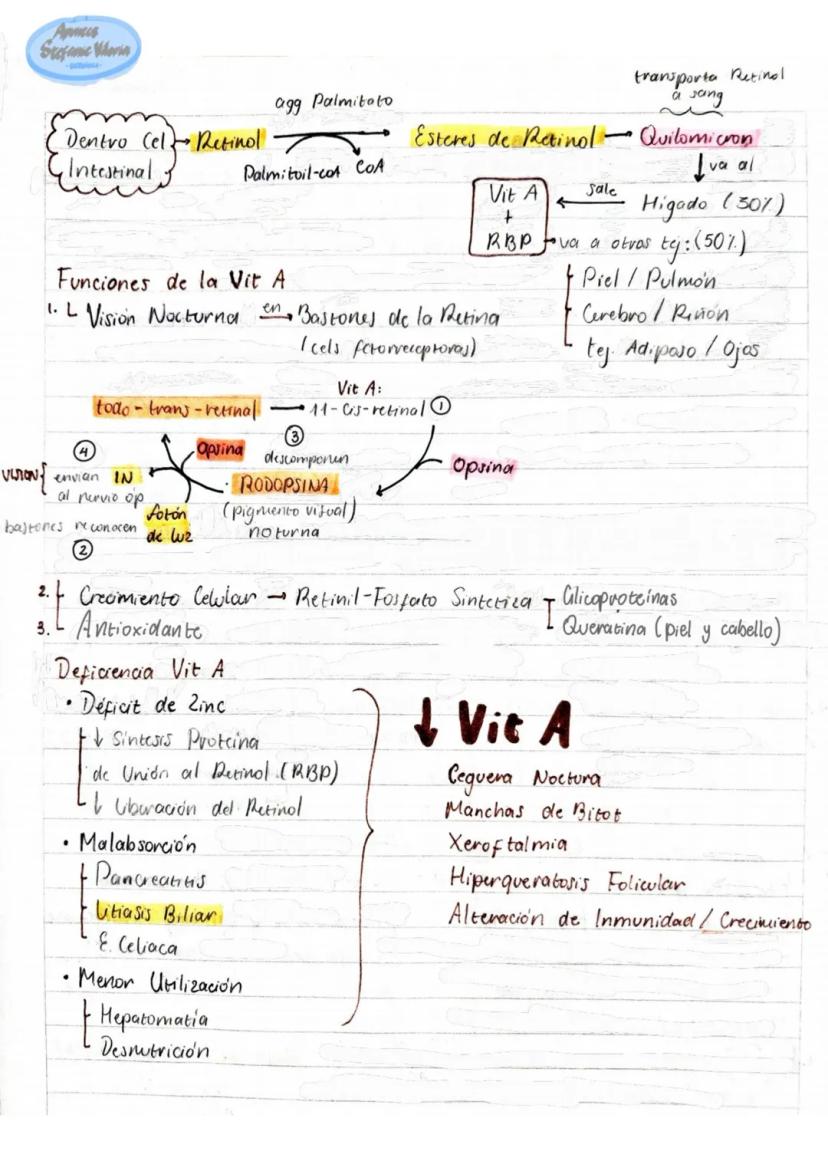 Apuntes
Stefanie Viloria
transporta Retinol
a sang
agg Palmitato
Dentro Cel → Retinol → Esteres de Retinol → Quilomicron
Intestinal
Palmitoil-coA CoA
↓ va al
Vit A ← sale Higado (30%)
+
RBP → va a otros tej: (50%)
Piel / Pulmón
Cerebro / Riñón
tej. Adiposo / Ojos
Funciones de la Vit A
1. Visión Nocturna en → Bastones de la Retina
(cels fotorreceptoras)
Vit A:
todo-trans-retinal → 11-cis-retinal ①
④ Opsina ③ descomponen
Opsina
VISION { envian IN
al nervio óp
RODOPSINA
(pigmento visual)
noturna
fotón
de luz
bastones reconocen
②
2. Crecimiento Celular → Retinil-Fosfato Sintetiza Glicoproteínas
Queratina (piel y cabello)
3. Antioxidante
Deficiencia Vit A
• Déficit de Zinc
↓ Sintesis Proteina
de Unión al Retinol (RBP)
↓ Liberación del Retinol
• Malabsorción
Pancreatitis
Litiasis Biliar
E. Celiaca
• Menor Utilización
Hepatomatía
Desnutrición
↓ Vit A
Ceguera Noctura
Manchas de Bitot
Xeroftalmia
Hiperqueratosis Folicular
Alteración de Inmunidad / Crecimiento